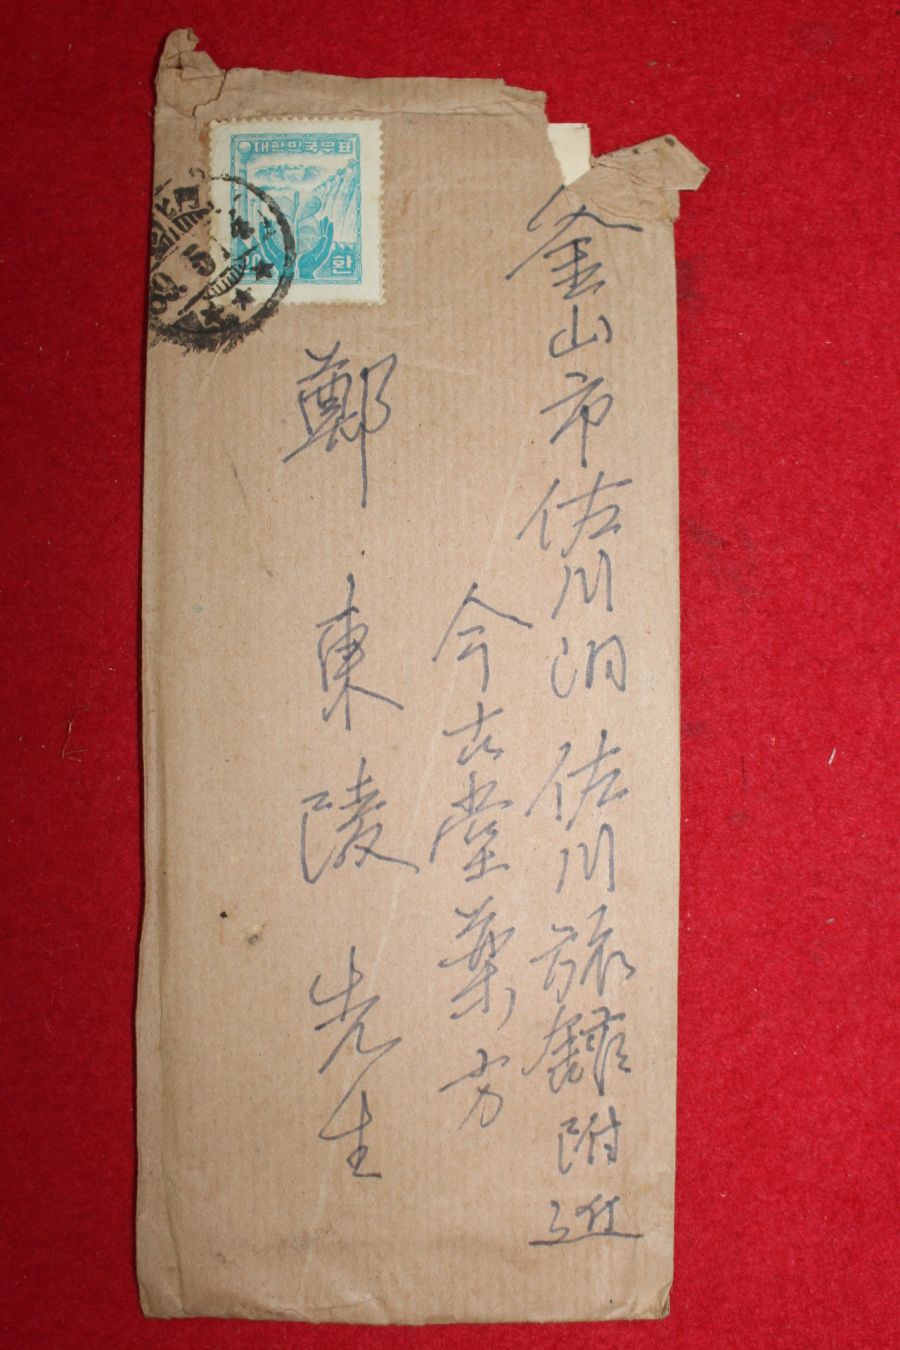 釜山市佐川洞 佐川旅館附近
今古堂薬方
鄭東陵先生
대한민국우표
환
89. 5.